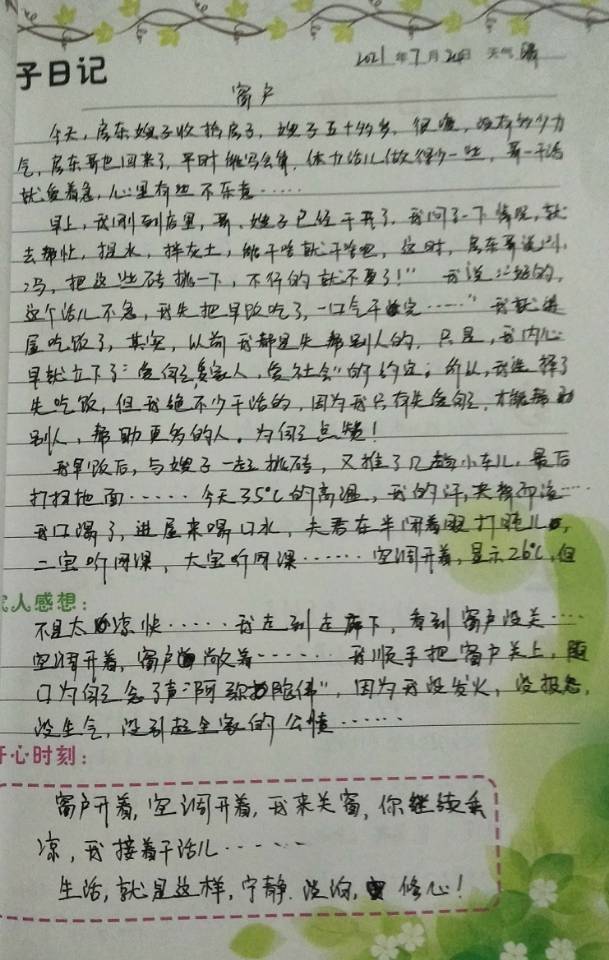 子日记
2021年7月24日 天气 晴
窗户
今天，房东嫂子收拾房子，嫂子五十多岁，很瘦，没有多少力
气，房东哥也回来了，平时能写会算，体力活儿做得少一些，哥一干活
就爱着急，心里有些不乐意……
早上，我刚到店里，哥、嫂子已经干开了，我问了一下情况，就
去帮忙，提水，拌灰土，能干啥就干啥吧，这时，房东哥说："小
冯，把这些砖挑一下，不行的就不要了！"我说："好的，
这个活儿不急，我先把早饭吃了，一口气干完……"我就进
屋吃饭了，其实，以前我都是先帮别人的，只是，我内心
早就立下了："爱自己爱家人，爱社会"的约定；所以，我选择了
先吃饭，但我绝不少干活的，因为我只有先爱自己，才能帮助
别人，帮助更多的人。为自己点赞！
我早饭后，与嫂子一起挑砖，又推了几趟小车儿，最后
打扫地面……今天35℃的高温，我的汗，夹背而流…
我口渴了，进屋来喝口水，夫君在半闭着眼打盹儿，
二宝听网课，大宝听网课……空调开着，显示26℃，但
人感想：
不是太凉快……我走到走廊下，看到窗户没关…
空调开着，窗户敞着……我顺手把窗户关上，随
口为自己念了声："阿弥陀佛"，因为我没发火，没报怨，
没生气，没引起全家的公愤……
开心时刻：
窗户开着，空调开着，我来关窗，你继续乘
凉，我接着干活儿……
生活，就是这样，宁静、淡泊，修心！